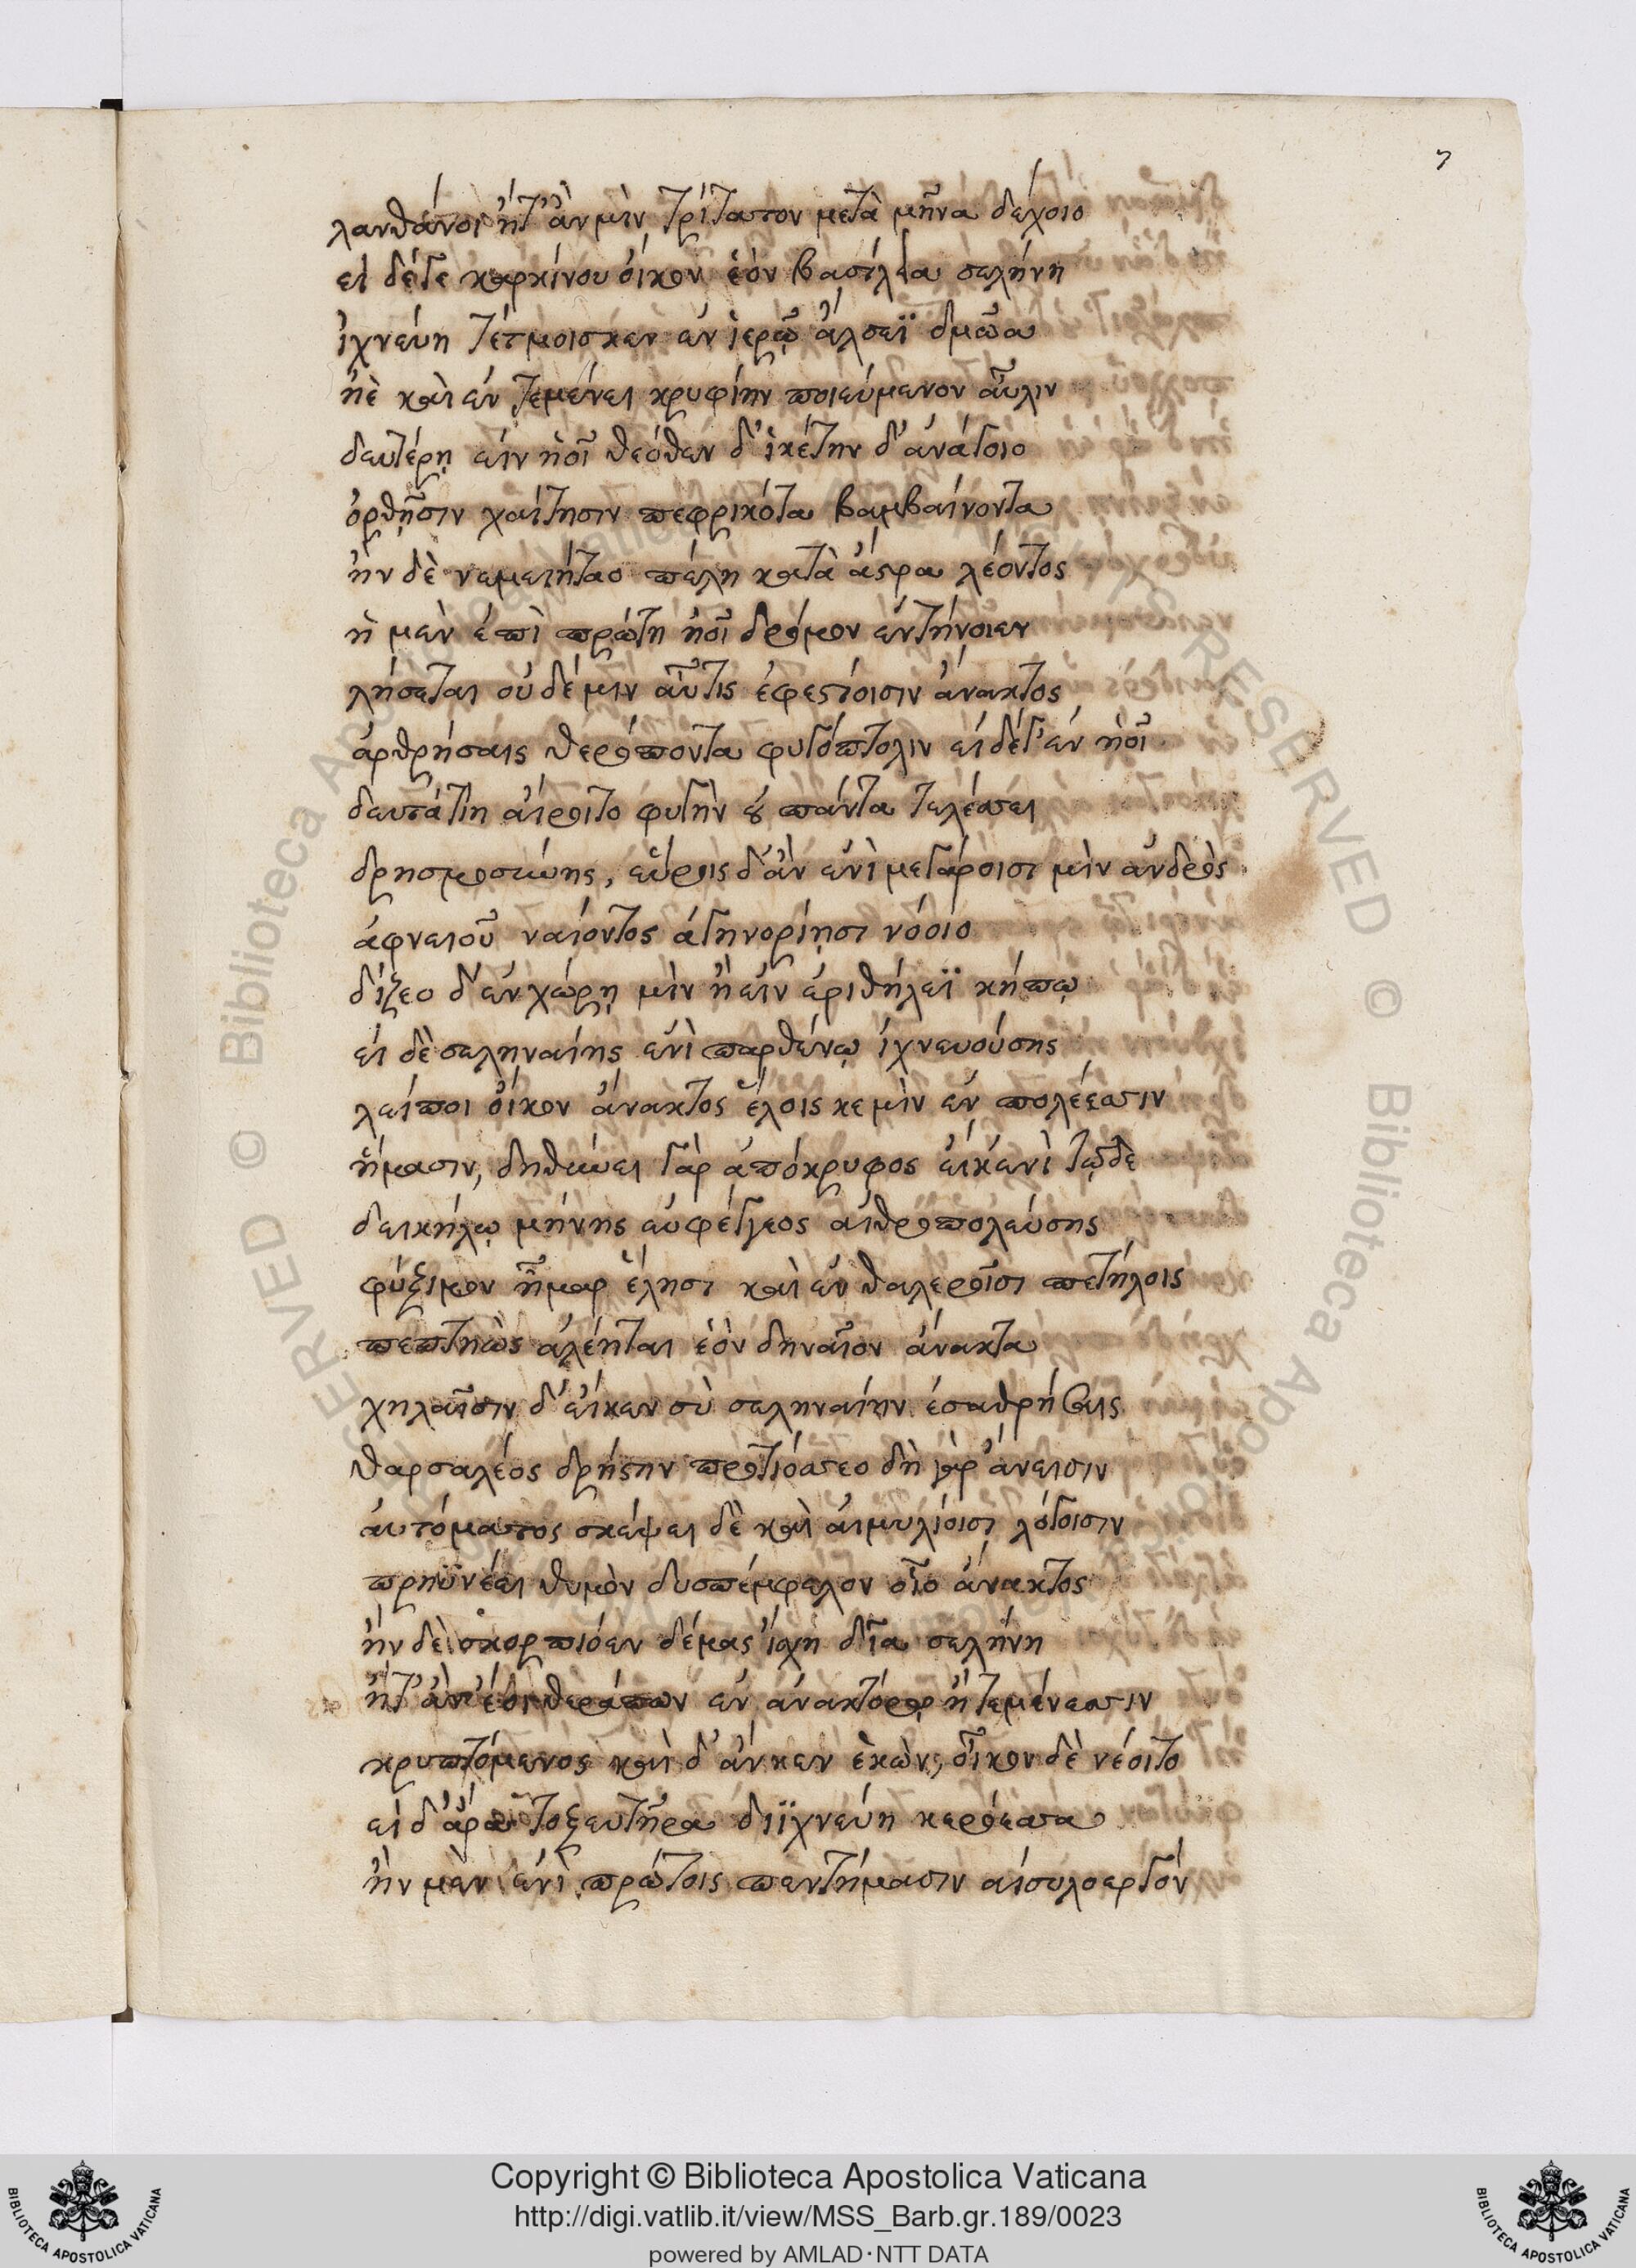 7
λανθάνοι ἤτ' ἂν μὶν τρίτατον μετὰ μῆνα δέχοιο
εἰ δέ γε καρκίνου οἶκον ἑὸν βασίλεια σελήνη
ἰχνεύη τέτμοισκεν ἐν ἱερῷ ἄλσεϊ δμῶα
ἠὲ καὶ ἐν τεμένει κρυφίην ποιεύμενον αὖλιν
δευτέρῃ εἰν ἠοῖ θεόθεν δ' ἱκέτην δ' ἀνάγοιο
ὀρθῇσιν χαίτησιν πεφρικότα βαμβαίνοντα
ἢν δὲ νεμειήταο πέλη κατὰ ἄστρα λέοντος
ἡ μὲν ἐπὶ πρώτη ἠοῖ δρόμον ἐντήνοιεν
λήσεται οὐδέ μιν αὖτις ἐφεστίοισιν ἄνακτος
ἀρθρήσαις θεράποντα φυγόπτολιν εἰ δέ γ' ἐν ἠοῖ
δευτάτιη αἴροιτο φυγὴν οὐ πάντα τελέσσει
δρησμοσύνης, εὕροις δ' ἂν ἐνὶ μεγάροισι μὶν ἀνδρὸς
ἀφνειοῦ ναίοντος ἀγηνορίησι νόοιο
δίζεο δ' ἐν χώρῃ μὶν ἢ εἰν ἐριθήλεϊ κήπῳ
εἰ δὲ σεληναίης ἐνὶ παρθένῳ ἰχνευούσης
λείποι οἶκον ἄνακτος ἕλοις κε μὶν ἐν πολέεσσιν
ἤμασιν, δηθύνει γὰρ ἀπόκρυφος εἰ κ' ἐνὶ τῷδε
δεικήλῳ μήνης εὐφέγγεος αἰθροπολεύσης
φύξιμον ἦμαρ ἕλησι καὶ ἐν θαλεροῖσι πετήλοις
πεπτηὼς ἀλέηται ἑὸν δηναῖον ἄνακτα
χηλαῖσιν δ' εἴκεν σὺ σεληναίην ἐσαθρήσεις
θαρσαλέος δρήστην προτιόσσεο δὴ γὰρ ἄνεισιν
αὐτόματος σκέψει δὲ καὶ αἱμυλίοισι λόγοισιν
πρηϋνέει θυμὸν δυσπέμφελον οἷο ἄνακτος
ἢν δὲ σκορπιόεν δέμας ἴσχη δῖα σελήνη
ἤτ' ἂν ἔοι θεράπων ἐν ἀνακτόρῳ ἢ τεμένεσσιν
κρυπτόμενος καὶ δ' ἄν κεν ἑκὼν, οἶκον δὲ νέοιτο
εἰ δ' ἄρα τοξευτῆρα διϊχνεύη κερόεσσα
ἢν μὲν ἐνὶ πρώτοις πεντήμασιν αἰσυλοεργὸν
Copyright © Biblioteca Apostolica Vaticana
http://digi.vatlib.it/view/MSS_Barb.gr.189/0023
powered by AMLAD·NTT DATA